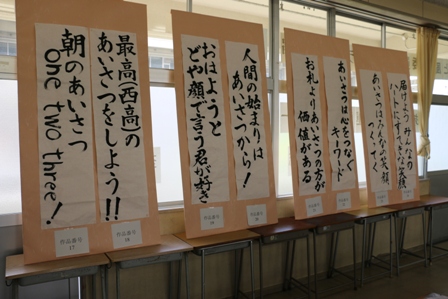 最高(西高)の
あいさつをしよう!!
朝のあいさつ
one two three!
人間の始まりは
あいさつから!
おはようと
どや顔で言う君が好き
あいさつは心をつなぐ
キーワード
お礼よりあいさつの方が
価値がある
届けよう みんなの
ハートにすてきな笑顔
あいさつはみんなの笑顔
つくってく
作品番号
17
作品番号
18
作品番号
19
作品番号
20